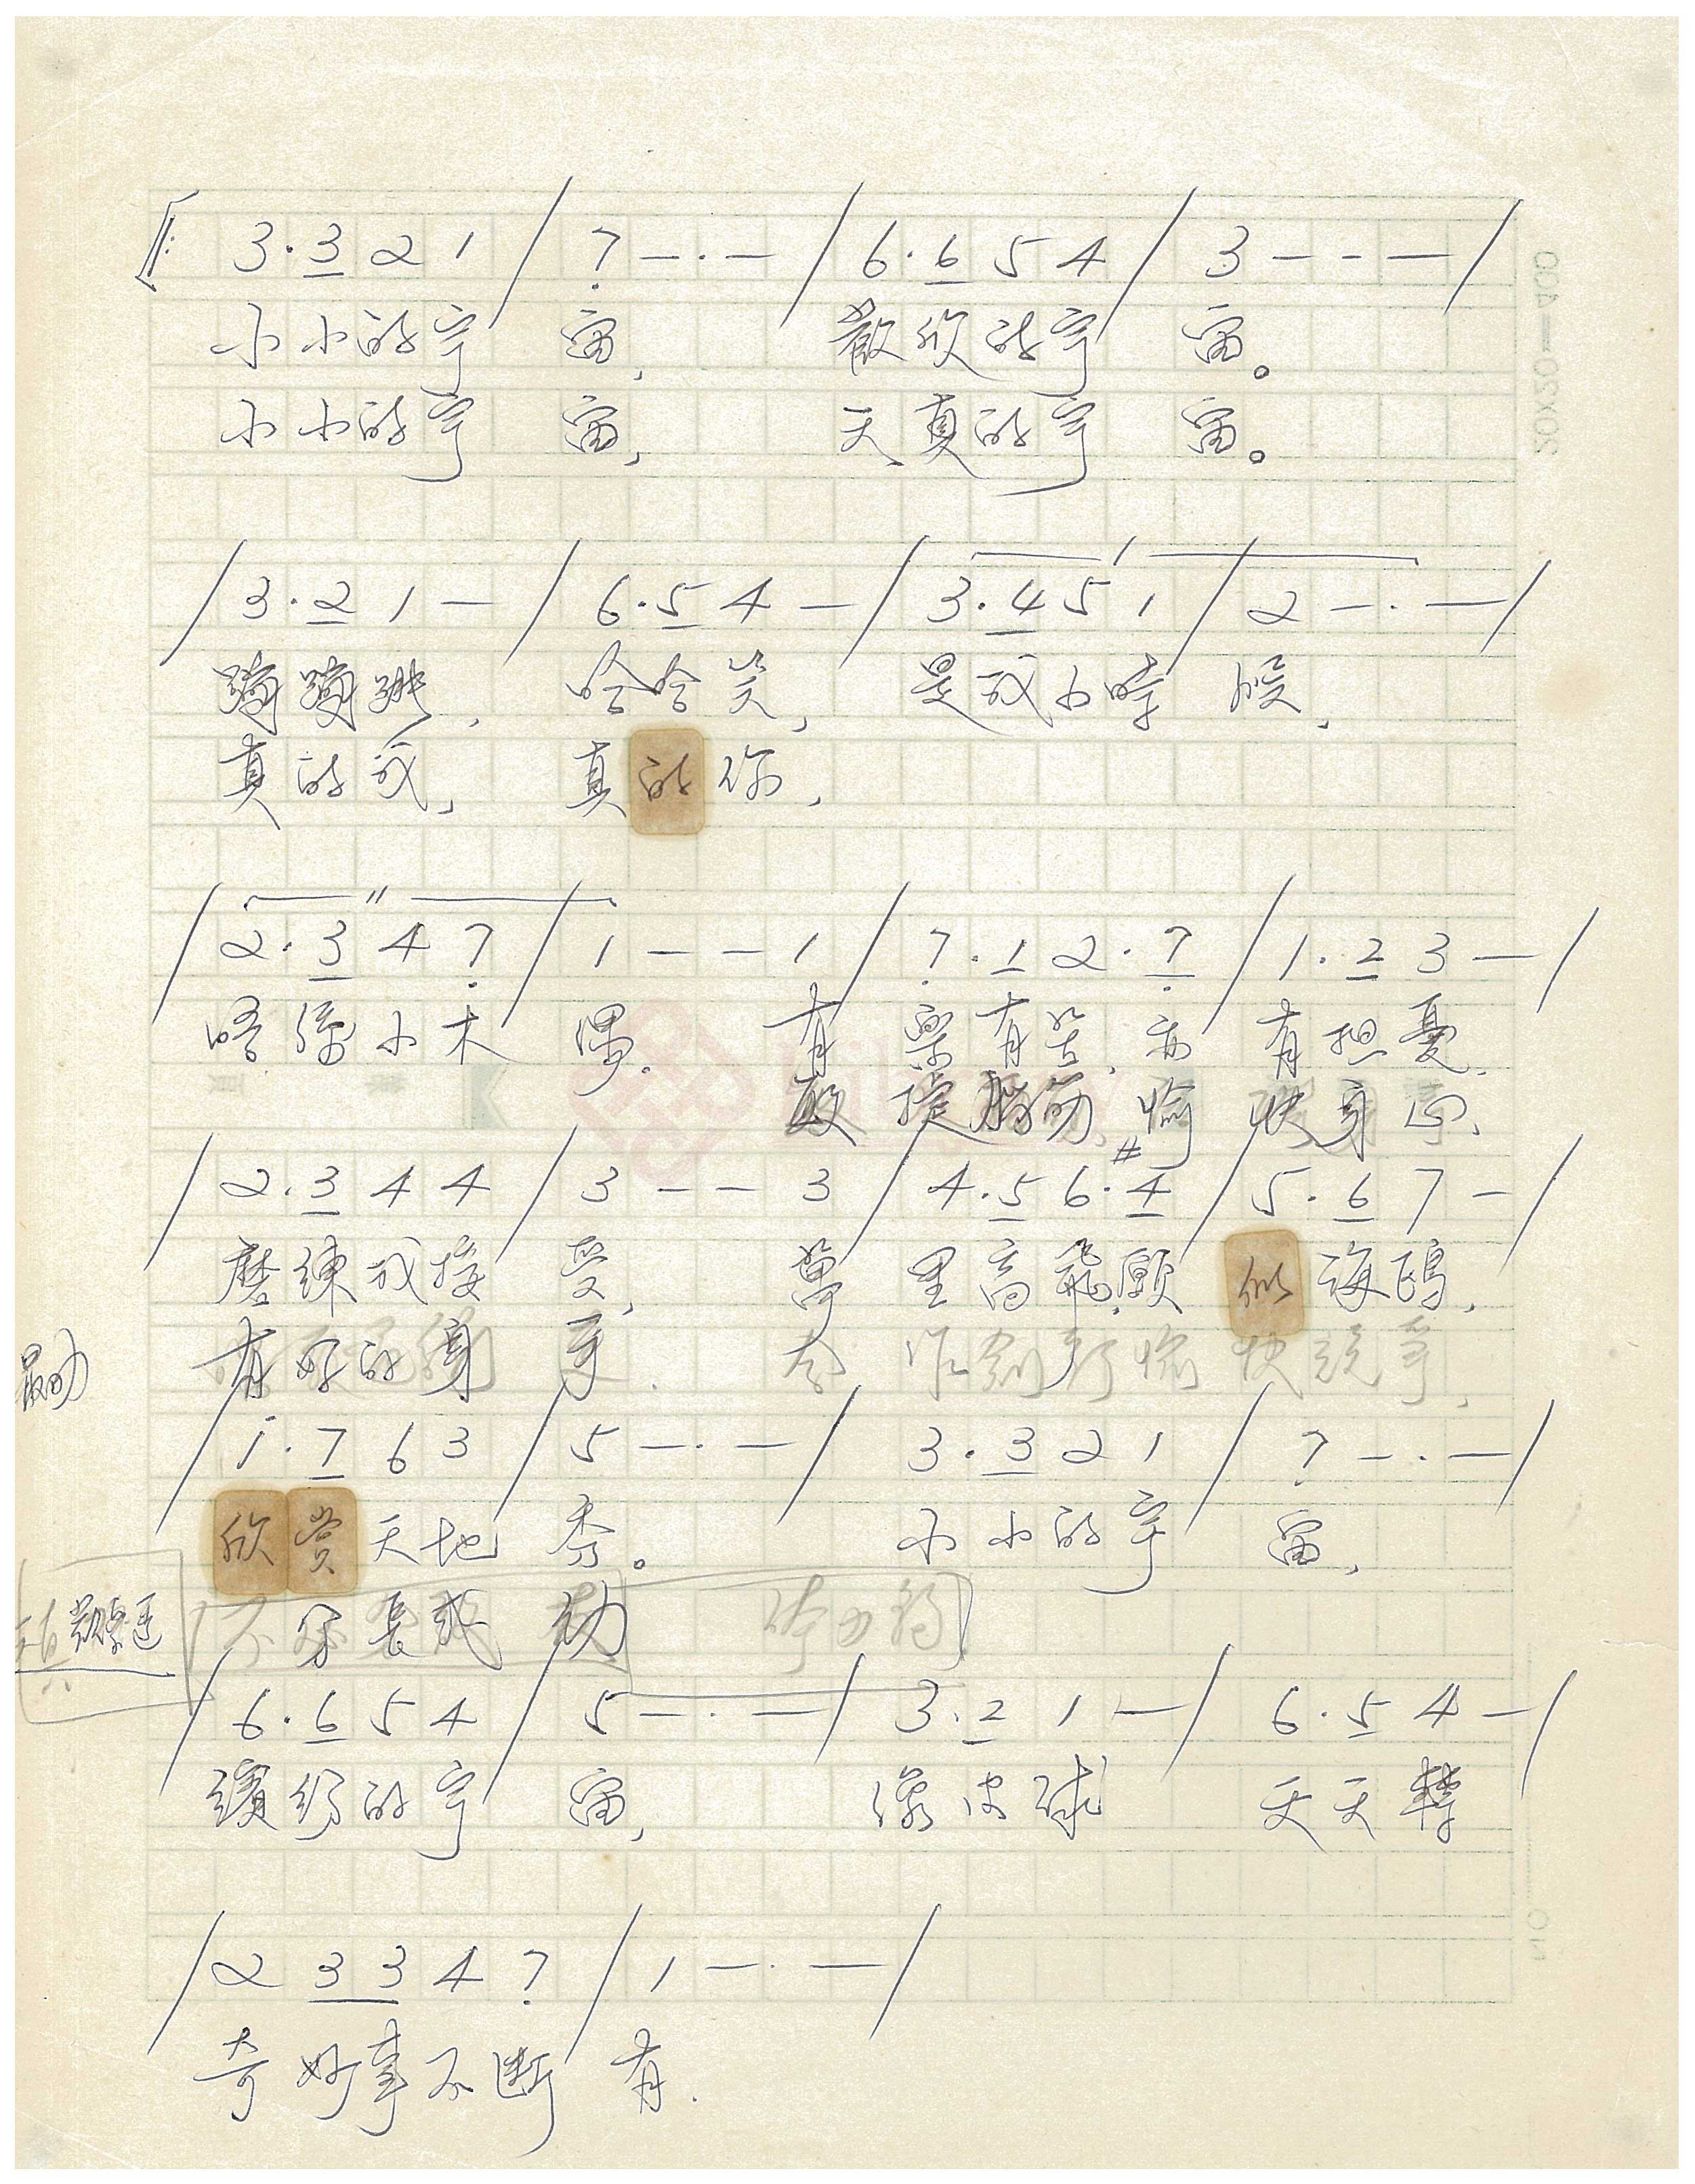 ‖: 3·3 2 1 / 7 — · — / 6·6 5 4 / 3 — — — /
小小的宇宙、 歡欣的宇宙。
小小的宇宙、 天真的宇宙。
/ 3·2 1 — / 6·5 4 — / 3·4 5 1 / 2 — · — /
蹦蹦跳、 哈哈笑、 是我小時候、
真的我、 真的你、
/ 2·3 4 7 / 1 — — 1 / 7·1 2·7 / 1·2 3 — /
唔係小木偶. 有樂有苦、亦有担憂、
敢 愉快身心、
/ 2·3 4 4 / 3 — — 3 / 4·5 6·#4 / 5·6 7 — /
磨練我接受、 萬里高飛、願似海鷗、
有好的身手. 愉快競爭、
/ 1·7 6 3 / 5 — · — / 3·3 2 1 / 7 — · — /
欣賞天地秀。 小小的宇宙、
/ 6·6 5 4 / 5 — · — / 3·2 1 — / 6·5 4 — /
繽紛的宇宙、 像皮球 天天
/ 2 3 3 4 7 / 1 — · — /
奇妙事不斷有.
20×20=400